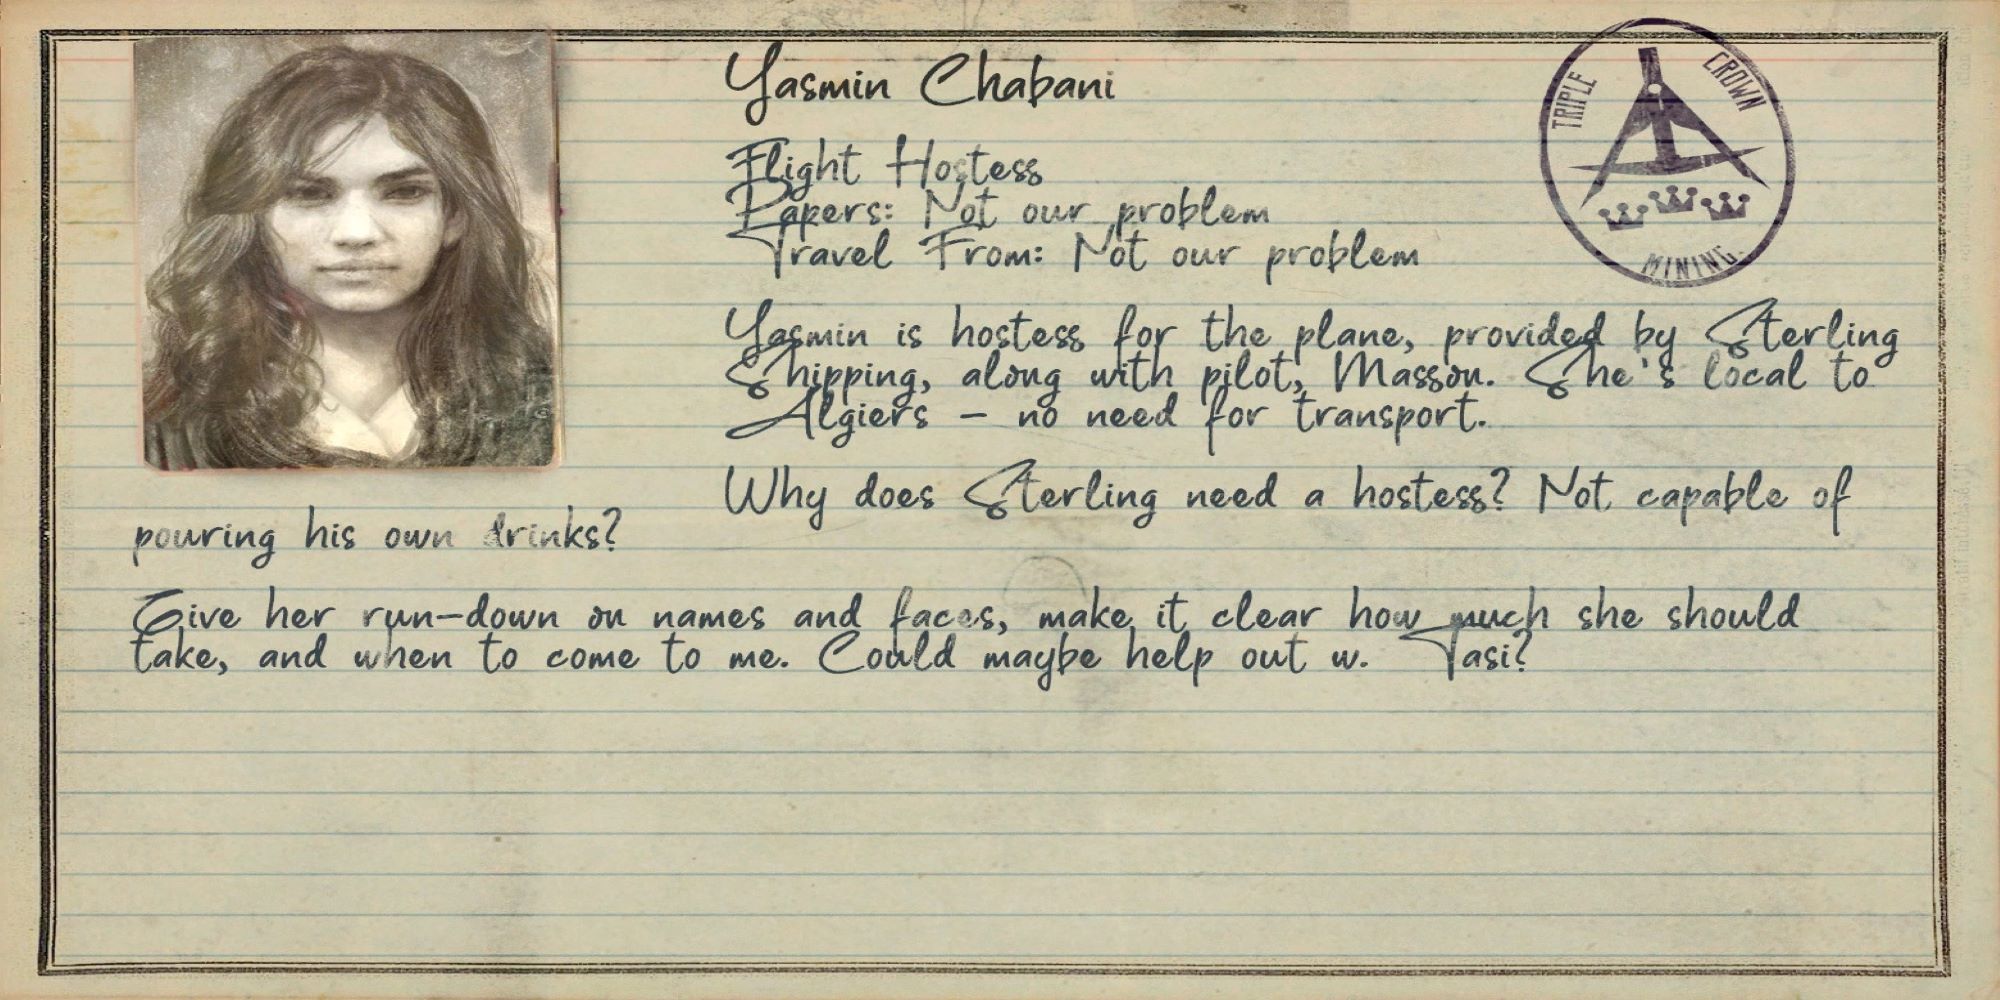 Yasmin Chabani
TRIPLE CROWN MINING.
Flight Hostess
Papers: Not our problem
Travel From: Not our problem
Yasmin is hostess for the plane, provided by Sterling
Shipping, along with pilot, Masson. She's local to
Algiers - no need for transport.
Why does Sterling need a hostess? Not capable of
pouring his own drinks?
Give her run-down on names and faces, make it clear how much she should
take, and when to come to me. Could maybe help out w. Tasi?